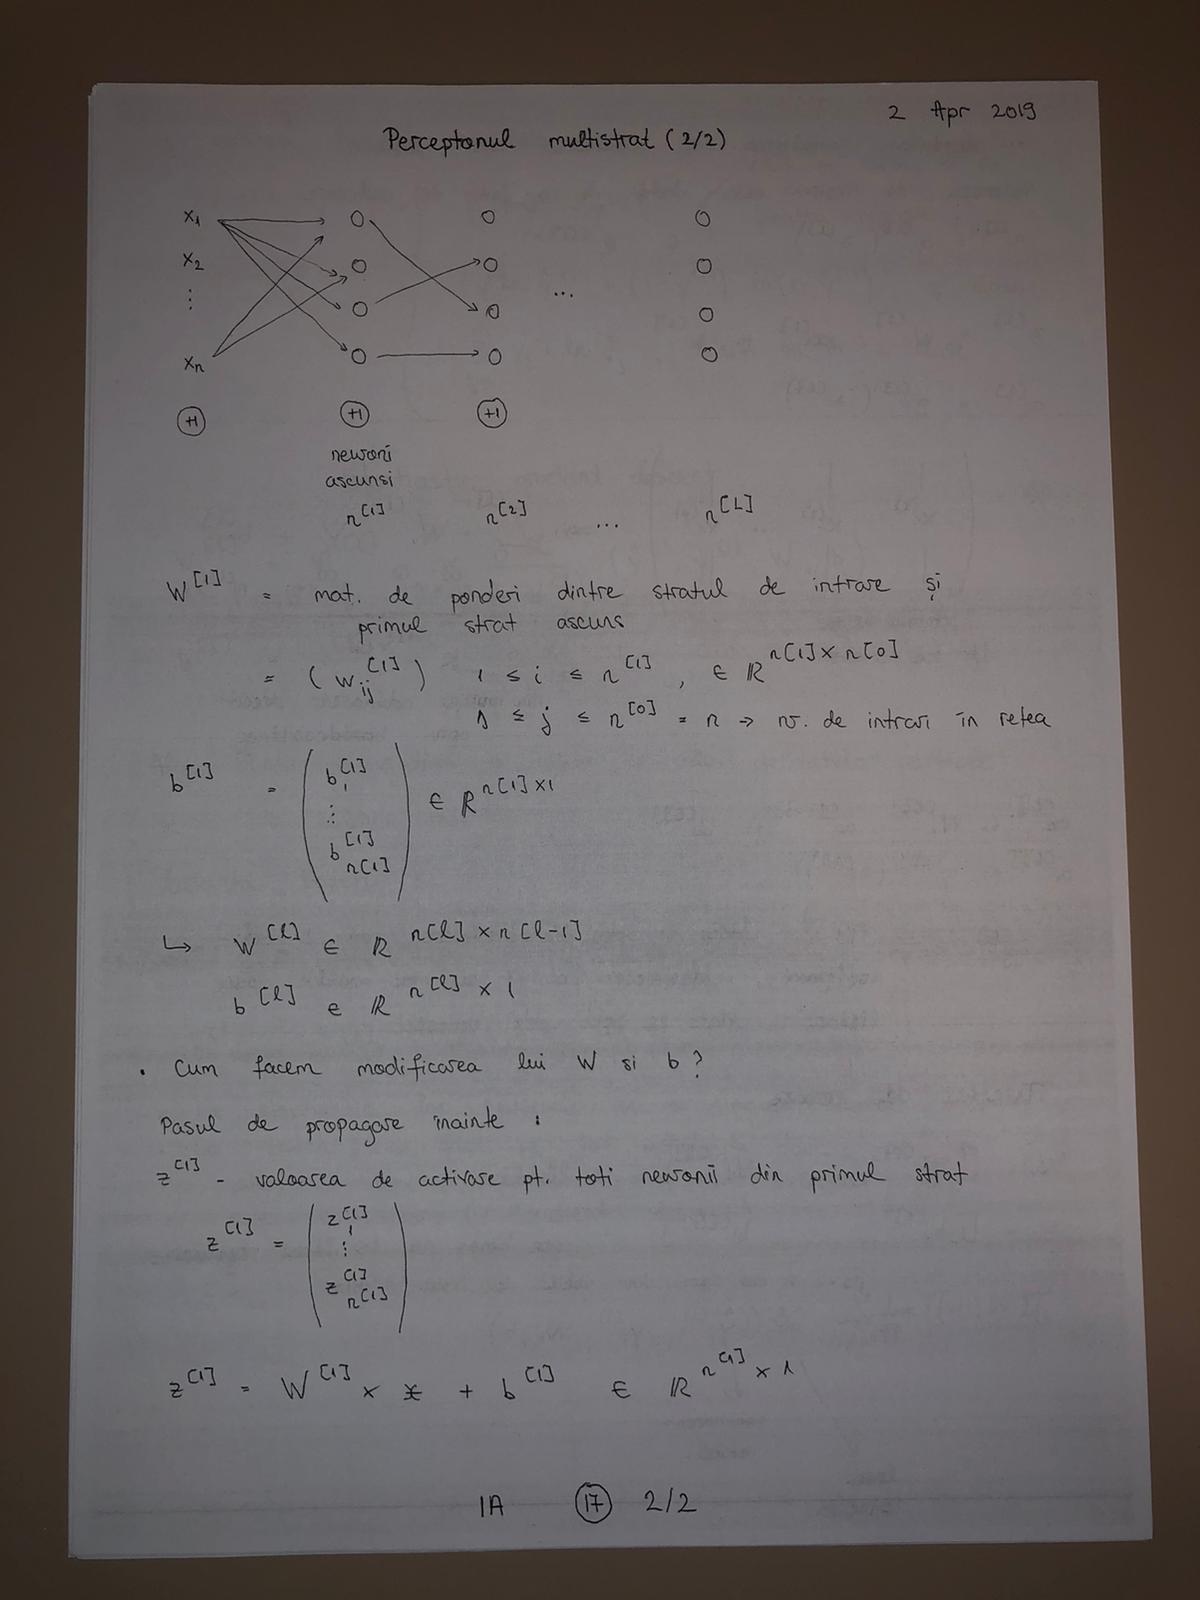 2 Apr 2019
Perceptonul multistrat (2/2)
x₁
x₂
⋮
...
xₙ
+1 +1 +1
neuroni
ascunsi
n^[1] n^[2] ... n^[L]
W^[1] = mat. de ponderi dintre stratul de intrare și
primul strat ascuns
= (w_ij^[1]) 1 ≤ i ≤ n^[1], ∈ ℝ^n[1] × n[0]
1 ≤ j ≤ n^[0] = n → nr. de intrari în retea
b^[1] = ( b_1^[1] ⋮ b_n[1]^[1] ) ∈ ℝ^n[1] × 1
↳ W^[l] ∈ ℝ^n[l] × n[l-1]
b^[l] ∈ ℝ^n[l] × 1
. Cum facem modificarea lui W si b?
Pasul de propagare înainte :
z^[1] - valoarea de activare pt. toti neuronii din primul strat
z^[1] = ( z_1^[1] ⋮ z_n[1]^[1] )
z^[1] = W^[1] × x + b^[1] ∈ ℝ^n[1] × 1
IA 17 2/2